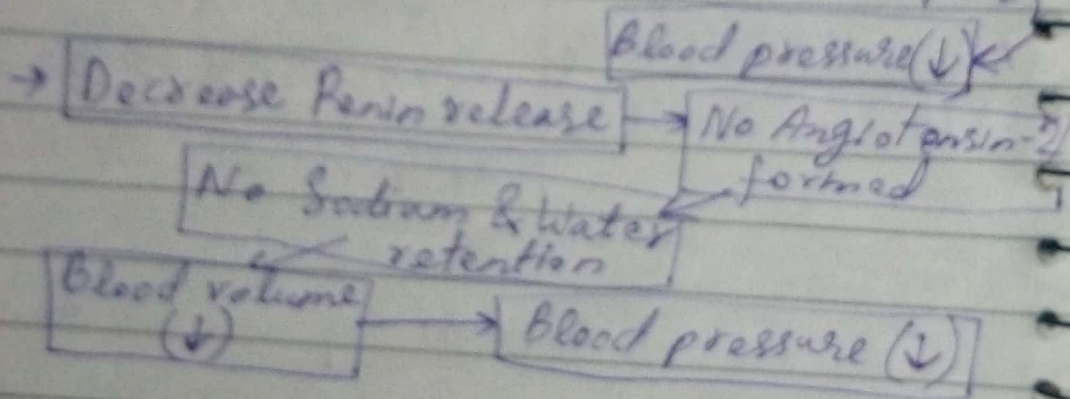 Blood pressure (↓)
→ Decrease Renin release → No Angiotensin-2
formed
No Sodium & Water
retention
Blood volume
(↓) → Blood pressure (↓)